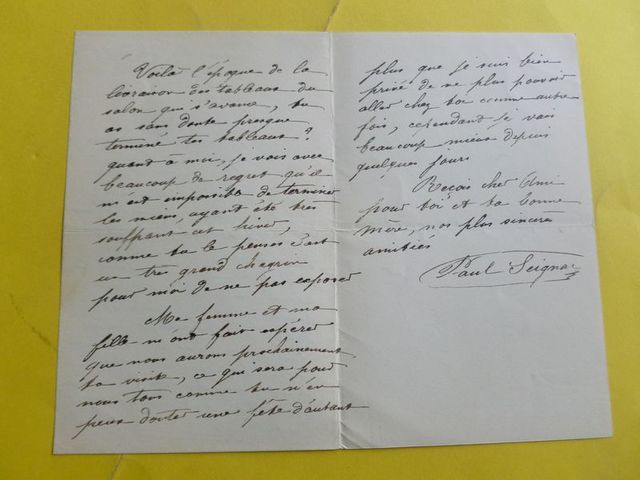 Voilà l'époque de la
livraison des tableaux du
salon qui s'avance, tu
as sans doute presque
terminé tes tableaux?
quant à moi, je vois avec
beaucoup de regret qu'il
m'est impossible de terminer
les miens, ayant été très
souffrant cet hiver,
comme tu le penses c'est
un très grand chagrin
pour moi de ne pas exposer
Ma femme et ma
fille m'ont fait espérer
que nous aurons prochainement
ta visite, ce qui sera pour
nous tous comme tu n'en
peux douter une fête d'autant
plus que je suis bien
privé de ne plus pouvoir
aller chez toi comme autre
fois, cependant je vais
beaucoup mieux depuis
quelques jours
Reçois cher Ami
pour toi et ta bonne
mère, nos plus sincères
amitiés
Paul Seignac